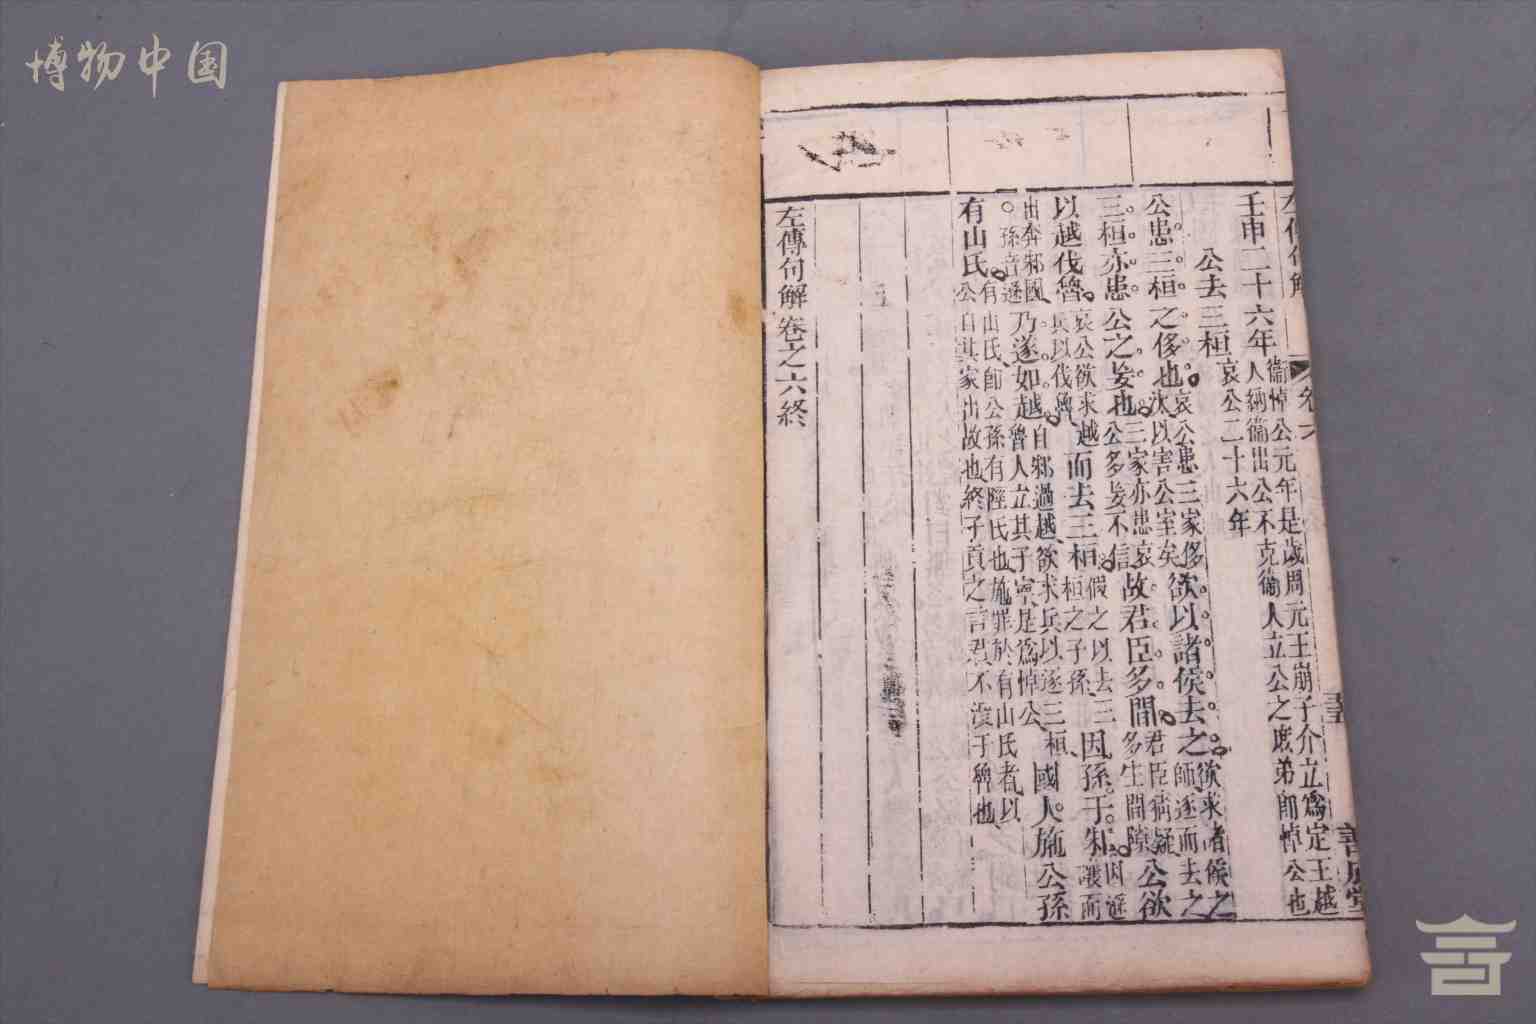 博物中国
左傳句解
卷六
善成堂
壬申二十六年衞悼公元年是歲周元王崩子介立爲定王越人納衞出公不克衞人立公之庶弟卽悼公也
公去三桓哀公二十六年
公患三桓之侈也哀公患三家侈汰以害公室矣欲以諸侯去之欲求諸侯之師逐而去之公欲
三桓亦患公之妄也三家亦患哀公多妄不信故君臣多間君臣猜疑多生間隙
以越伐魯哀公欲求越兵以伐魯而去三桓假之以去三桓之子孫因孫于邾因遜讓而
出奔邾國孫音遜乃遂如越自邾過越欲求兵以逐三桓魯人立其子寧是爲悼公國人施公孫
有山氏有山氏卽公孫有陘氏也施罪於有山氏者以公自其家出故也終子貢之言君不沒于魯也
左傳句解卷之六終